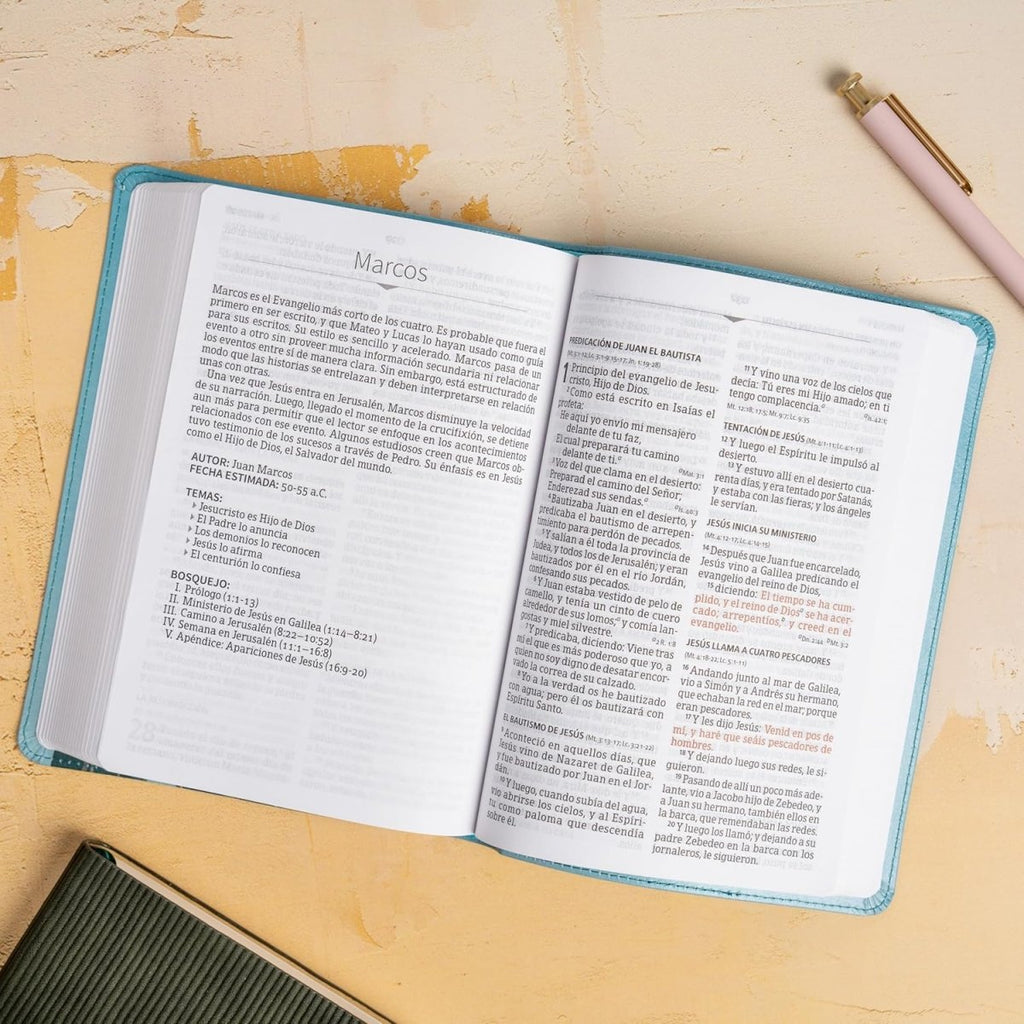 Marcos
Marcos es el Evangelio más corto de los cuatro. Es probable que fuera el
primero en ser escrito, y que Mateo y Lucas lo hayan usado como guía
para sus escritos. Su estilo es sencillo y acelerado. Marcos pasa de un
evento a otro sin proveer mucha información secundaria ni relacionar
los eventos entre sí de manera clara. Sin embargo, está estructurado de
modo que las historias se entrelazan y deben interpretarse en relación
unas con otras.
Una vez que Jesús entra en Jerusalén, Marcos disminuye la velocidad
de su narración. Luego, llegado el momento de la crucifixión, se detiene
aun más para permitir que el lector se enfoque en los acontecimientos
relacionados con ese evento. Algunos estudiosos creen que Marcos ob-
tuvo testimonio de los sucesos a través de Pedro. Su énfasis es en Jesús
como el Hijo de Dios, el Salvador del mundo.
AUTOR: Juan Marcos
FECHA ESTIMADA: 50-55 a.C.
TEMAS:
Jesucristo es Hijo de Dios
El Padre lo anuncia
Los demonios lo reconocen
Jesús lo afirma
El centurión lo confiesa
BOSQUEJO:
I. Prólogo (1:1-13)
II. Ministerio de Jesús en Galilea (1:14–8:21)
III. Camino a Jerusalén (8:22–10:52)
IV. Semana en Jerusalén (11:1–16:8)
V. Apéndice: Apariciones de Jesús (16:9-20)
PREDICACIÓN DE JUAN EL BAUTISTA
1 Principio del evangelio de Jesu-
cristo, Hijo de Dios.
2 Como está escrito en Isaías el
profeta:
He aquí yo envío mi mensajero
delante de tu faz,
El cual preparará tu camino
delante de ti.a
a Mal. 3:1
3 Voz del que clama en el desierto:
Preparad el camino del Señor;
Enderezad sus sendas.a
a Is. 40:3
4 Bautizaba Juan en el desierto, y
predicaba el bautismo de arrepen-
timiento para perdón de pecados.
5 Y salían a él toda la provincia de
Judea, y todos los de Jerusalén; y eran
bautizados por él en el río Jordán,
confesando sus pecados.
6 Y Juan estaba vestido de pelo de
camello, y tenía un cinto de cuero
alrededor de sus lomos;a y comía lan-
gostas y miel silvestre.
a 2 R. 1:8
7 Y predicaba, diciendo: Viene tras
mí el que es más poderoso que yo, a
quien no soy digno de desatar encor-
vado la correa de su calzado.
8 Yo a la verdad os he bautizado
con agua; pero él os bautizará con
Espíritu Santo.
EL BAUTISMO DE JESÚS (Mt. 3:13-17; Lc. 3:21-22)
9 Aconteció en aquellos días, que
Jesús vino de Nazaret de Galilea,
y fue bautizado por Juan en el Jor-
dán.
10 Y luego, cuando subía del agua,
vio abrirse los cielos, y al Espíri-
tu como paloma que descendía
sobre él.
11 Y vino una voz de los cielos que
decía: Tú eres mi Hijo amado; en ti
tengo complacencia.a
a Is. 42:1;
Mt. 12:18; 17:5; Mr. 9:7; Lc. 9:35
TENTACIÓN DE JESÚS (Mt. 4:1-11; Lc. 4:1-13)
12 Y luego el Espíritu le impulsó al
desierto.
13 Y estuvo allí en el desierto cua-
renta días, y era tentado por Satanás,
y estaba con las fieras; y los ángeles
le servían.
JESÚS INICIA SU MINISTERIO
(Mt. 4:12-17; Lc. 4:14-15)
14 Después que Juan fue encarcelado,
Jesús vino a Galilea predicando el
evangelio del reino de Dios,
15 diciendo: El tiempo se ha cum-
plido, y el reino de Diosa se ha acer-
cado; arrepentíos,b y creed en el
evangelio.
a Dn. 2:44 b Mt. 3:2
JESÚS LLAMA A CUATRO PESCADORES
(Mt. 4:18-22; Lc. 5:1-11)
16 Andando junto al mar de Galilea,
vio a Simón y a Andrés su hermano,
que echaban la red en el mar; porque
eran pescadores.
17 Y les dijo Jesús: Venid en pos de
mí, y haré que seáis pescadores de
hombres.
18 Y dejando luego sus redes, le si-
guieron.
19 Pasando de allí un poco más ade-
lante, vio a Jacobo hijo de Zebedeo, y
a Juan su hermano, también ellos en
la barca, que remendaban las redes.
20 Y luego los llamó; y dejando a su
padre Zebedeo en la barca con los
jornaleros, le siguieron.